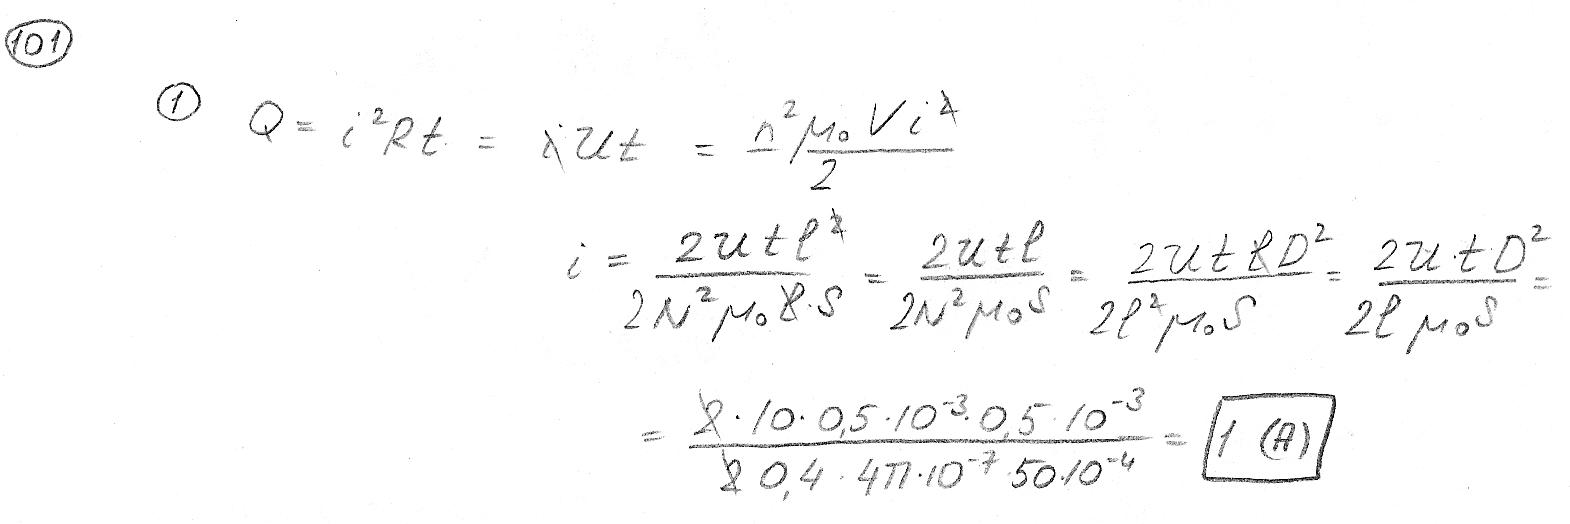 101
1 Q = i²Rt = iUt = n²μ₀Vi²/2
i = 2Utl²/2N²μ₀l·S = 2Utl/2N²μ₀S = 2UtlD²/2l²μ₀S = 2U·tD²/2lμ₀S =
= 2·10·0,5·10⁻³·0,5·10⁻³/2 0,4·4π·10⁻⁷·50·10⁻⁴ = 1 (A)